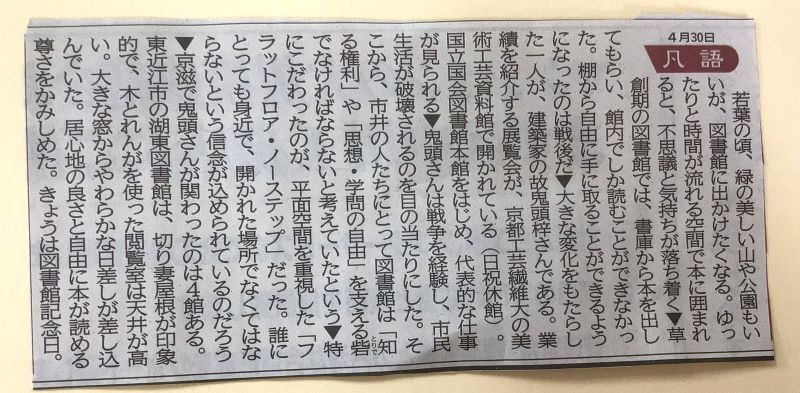 4月30日
凡語
若葉の頃、緑の美しい山や公園もい
いが、図書館に出かけたくなる。ゆっ
たりと時間が流れる空間で本に囲まれ
ると、不思議と気持ちが落ち着く▼草
創期の図書館では、書庫から本を出し
てもらい、館内でしか読むことができなかっ
た。棚から自由に手に取ることができるよう
になったのは戦後だ▼大きな変化をもたらし
た一人が、建築家の故鬼頭梓さんである。業
績を紹介する展覧会が、京都工芸繊維大の美
術工芸資料館で開かれている（日祝休館）。
国立国会図書館本館をはじめ、代表的な仕事
が見られる▼鬼頭さんは戦争を経験し、市民
生活が破壊されるのを目の当たりにした。そ
こから、市井の人たちにとって図書館は「知
る権利」や「思想・学問の自由」を支える砦
とりで
でなければならないと考えていたという▼特
にこだわったのが、平面空間を重視した「フ
ラットフロア・ノーステップ」だった。誰に
とっても身近で、開かれた場所でなくてはな
らないという信念が込められているのだろう
▼京滋で鬼頭さんが関わったのは４館ある。
東近江市の湖東図書館は、切り妻屋根が印象
的で、木とれんがを使った閲覧室は天井が高
い。大きな窓からやわらかな日差しが差し込
んでいた。居心地の良さと自由に本が読める
尊さをかみしめた。きょうは図書館記念日。